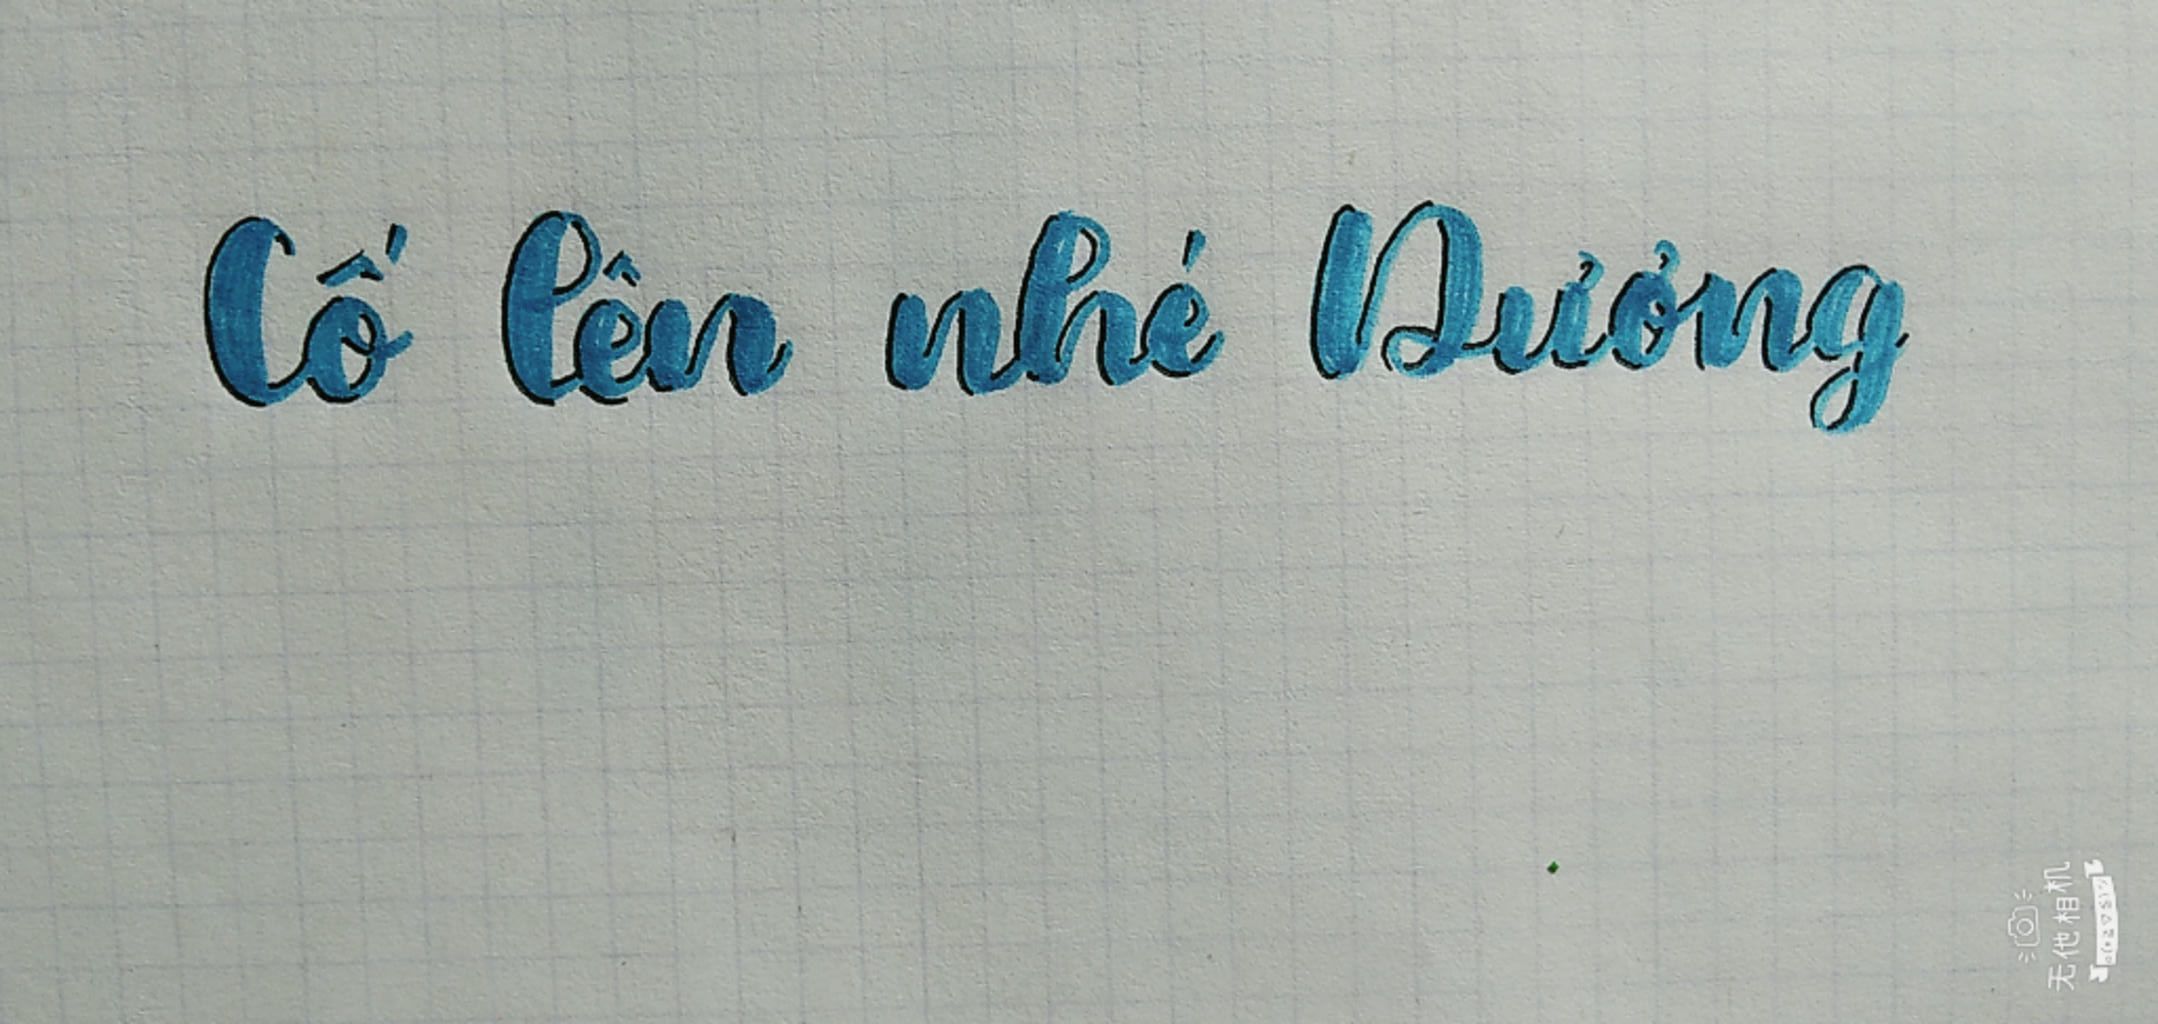 Cố lên nhé Dương
无他相机